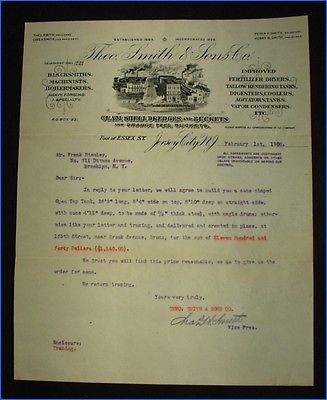 THEO. SMITH, PRESIDENT.
CHAS. A. SMITH, VICE PRESIDENT.
ESTABLISHED 1865. INCORPORATED 1898.
PETER F. SMITH,
HENRY B. SMITH,
Theo. Smith & Sons Co.
BLACKSMITHS,
MACHINISTS,
BOILERMAKERS.
HEAVY FORGING
A SPECIALTY.
P.O. BOX 83
IMPROVED
FERTILIZER DRYERS,
TALLOW RENDERING TANKS,
DIGESTERS, COOLERS,
AGITATOR TANKS,
VAPOR CONDENSERS,
ETC.
CLAM SHELL DREDGES AND BUCKETS
AND ORANGE PEEL BUCKETS.
Foot of ESSEX ST.
Jersey City, N.J.
February 1st, 1906.
ALL AGREEMENTS ARE CONTINGENT
UPON STRIKES, ACCIDENTS OR OTHER
DELAYS UNAVOIDABLE OR BEYOND OUR
CONTROL.
Mr. Frank
No. 711 Ditmas Avenue,
Brooklyn, N. Y.
Dear Sir:-
In reply to your letter, we will agree to build a cone shaped
Open Top Tank, long, 8'4" wide on top, deep on straight side,
with cone deep, to be made of thick steel, with angle drums; other-
wise like your letter and tracing, and delivered and erected in place, at
Street, near Avenue, Bronx, for the sum of Eleven Hundred and
Forty Dollars ($1,140.00).
We trust you will find this price reasonable, so as to give us the
order for same.
We return tracing.
Yours very truly,
THEO. SMITH & SONS CO.
Chas. A. Smith
Vice Pres.
Enclosure:
Tracing.